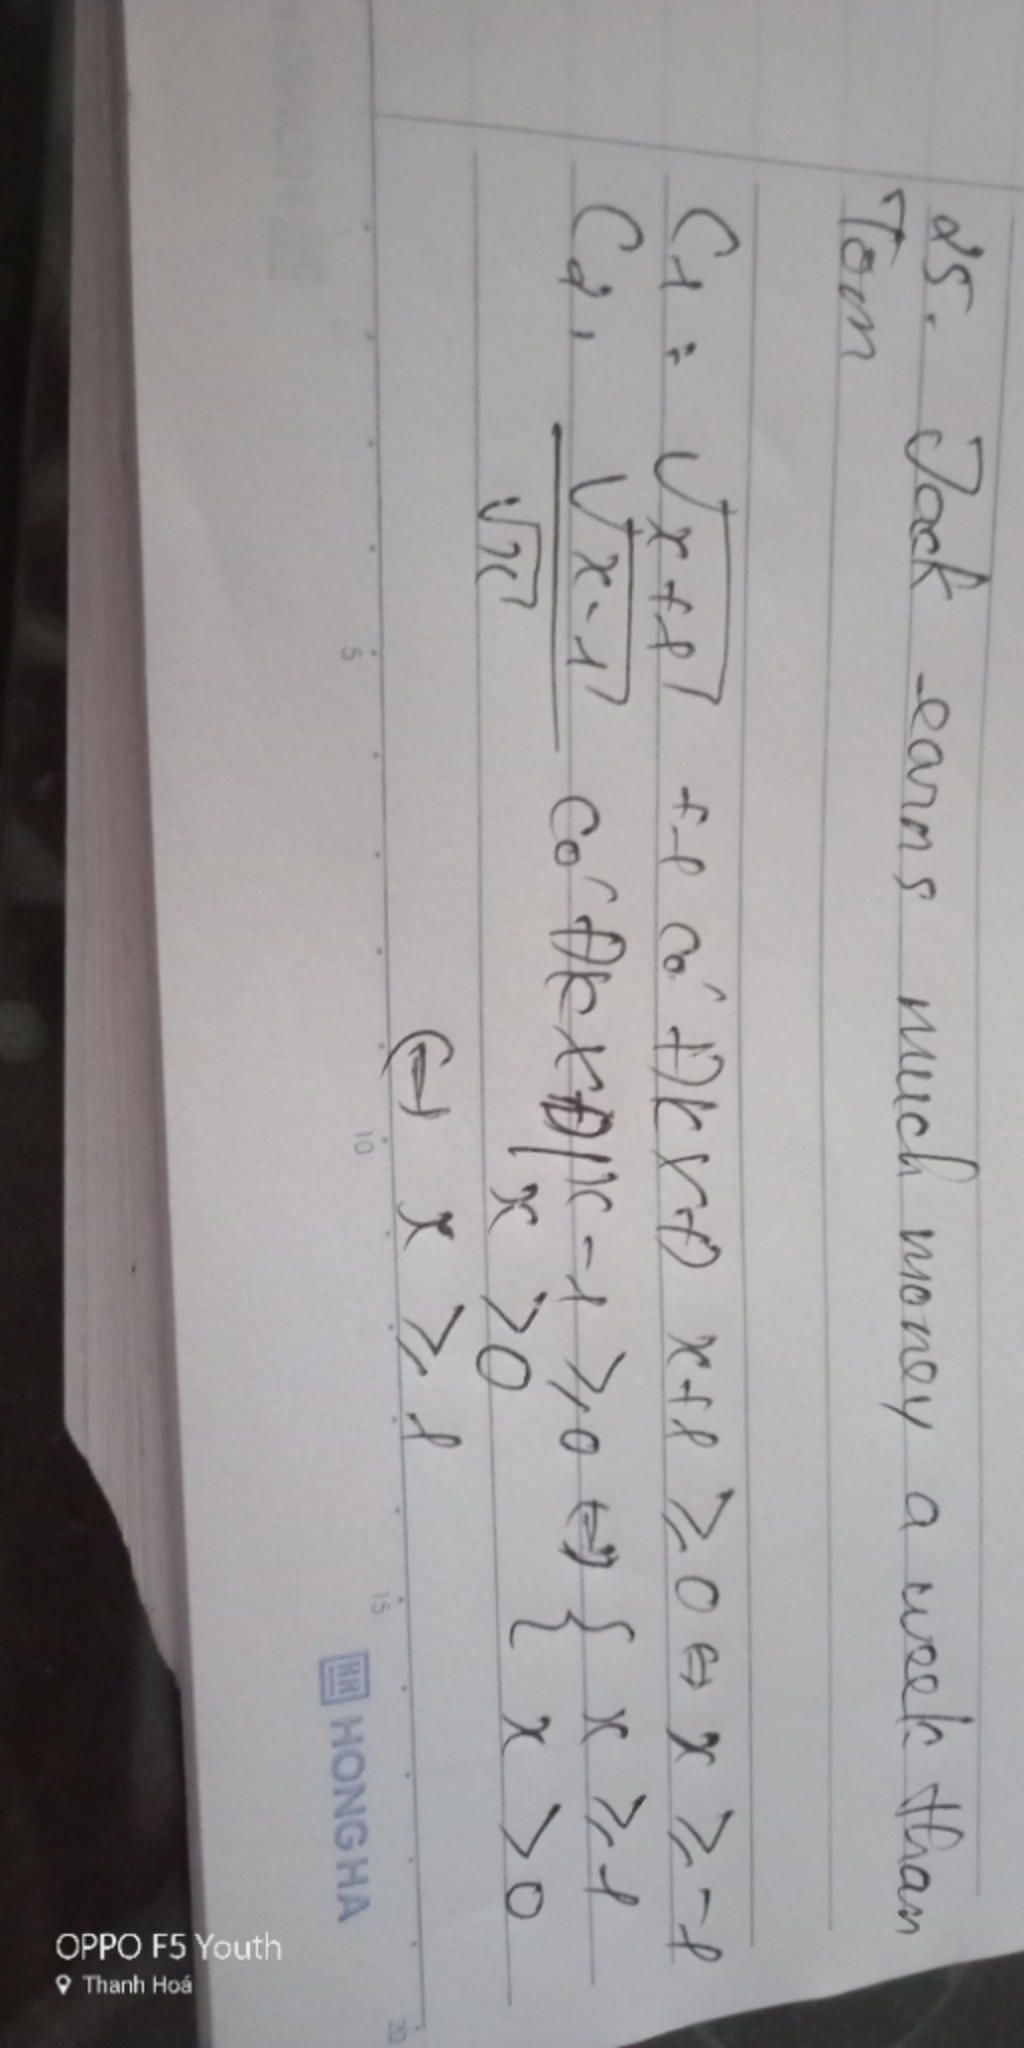 25. Jack earns much money a week than
Tom
C1: √x+1 +1 có ĐKXĐ x+1 ≥ 0 ⇔ x ≥ -1
C2, √x-1 / √x có ĐKXĐ { x - 1 ≥ 0 ⇔ { x ≥ 1
x > 0 { x > 0
⇔ x ≥ 1
5 10 15 20
HONG HA
OPPO F5 Youth
Thanh Hoá